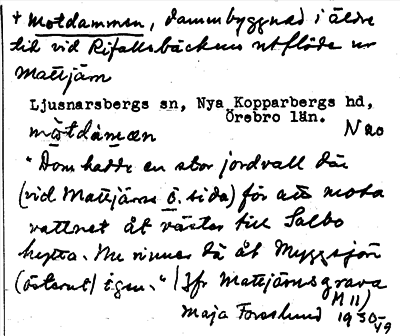 + Motdammen, dammbyggnad i äldre
tid vid Rifallsbäckens utflöde ur
Mattjärn
Ljusnarsbergs sn, Nya Kopparbergs hd,
Örebro län.
mòtdàmən
"Dom hadde en stor jordvall där
(vid Mattjärns ö. sida) för att mota
vattnet åt väster till Salbo
hytta. Nu rinner dä åt Myggsjön
(österut) igen." (Jfr Mattjärnsgrava
M 11)
Maja Forsslund 1930-
49